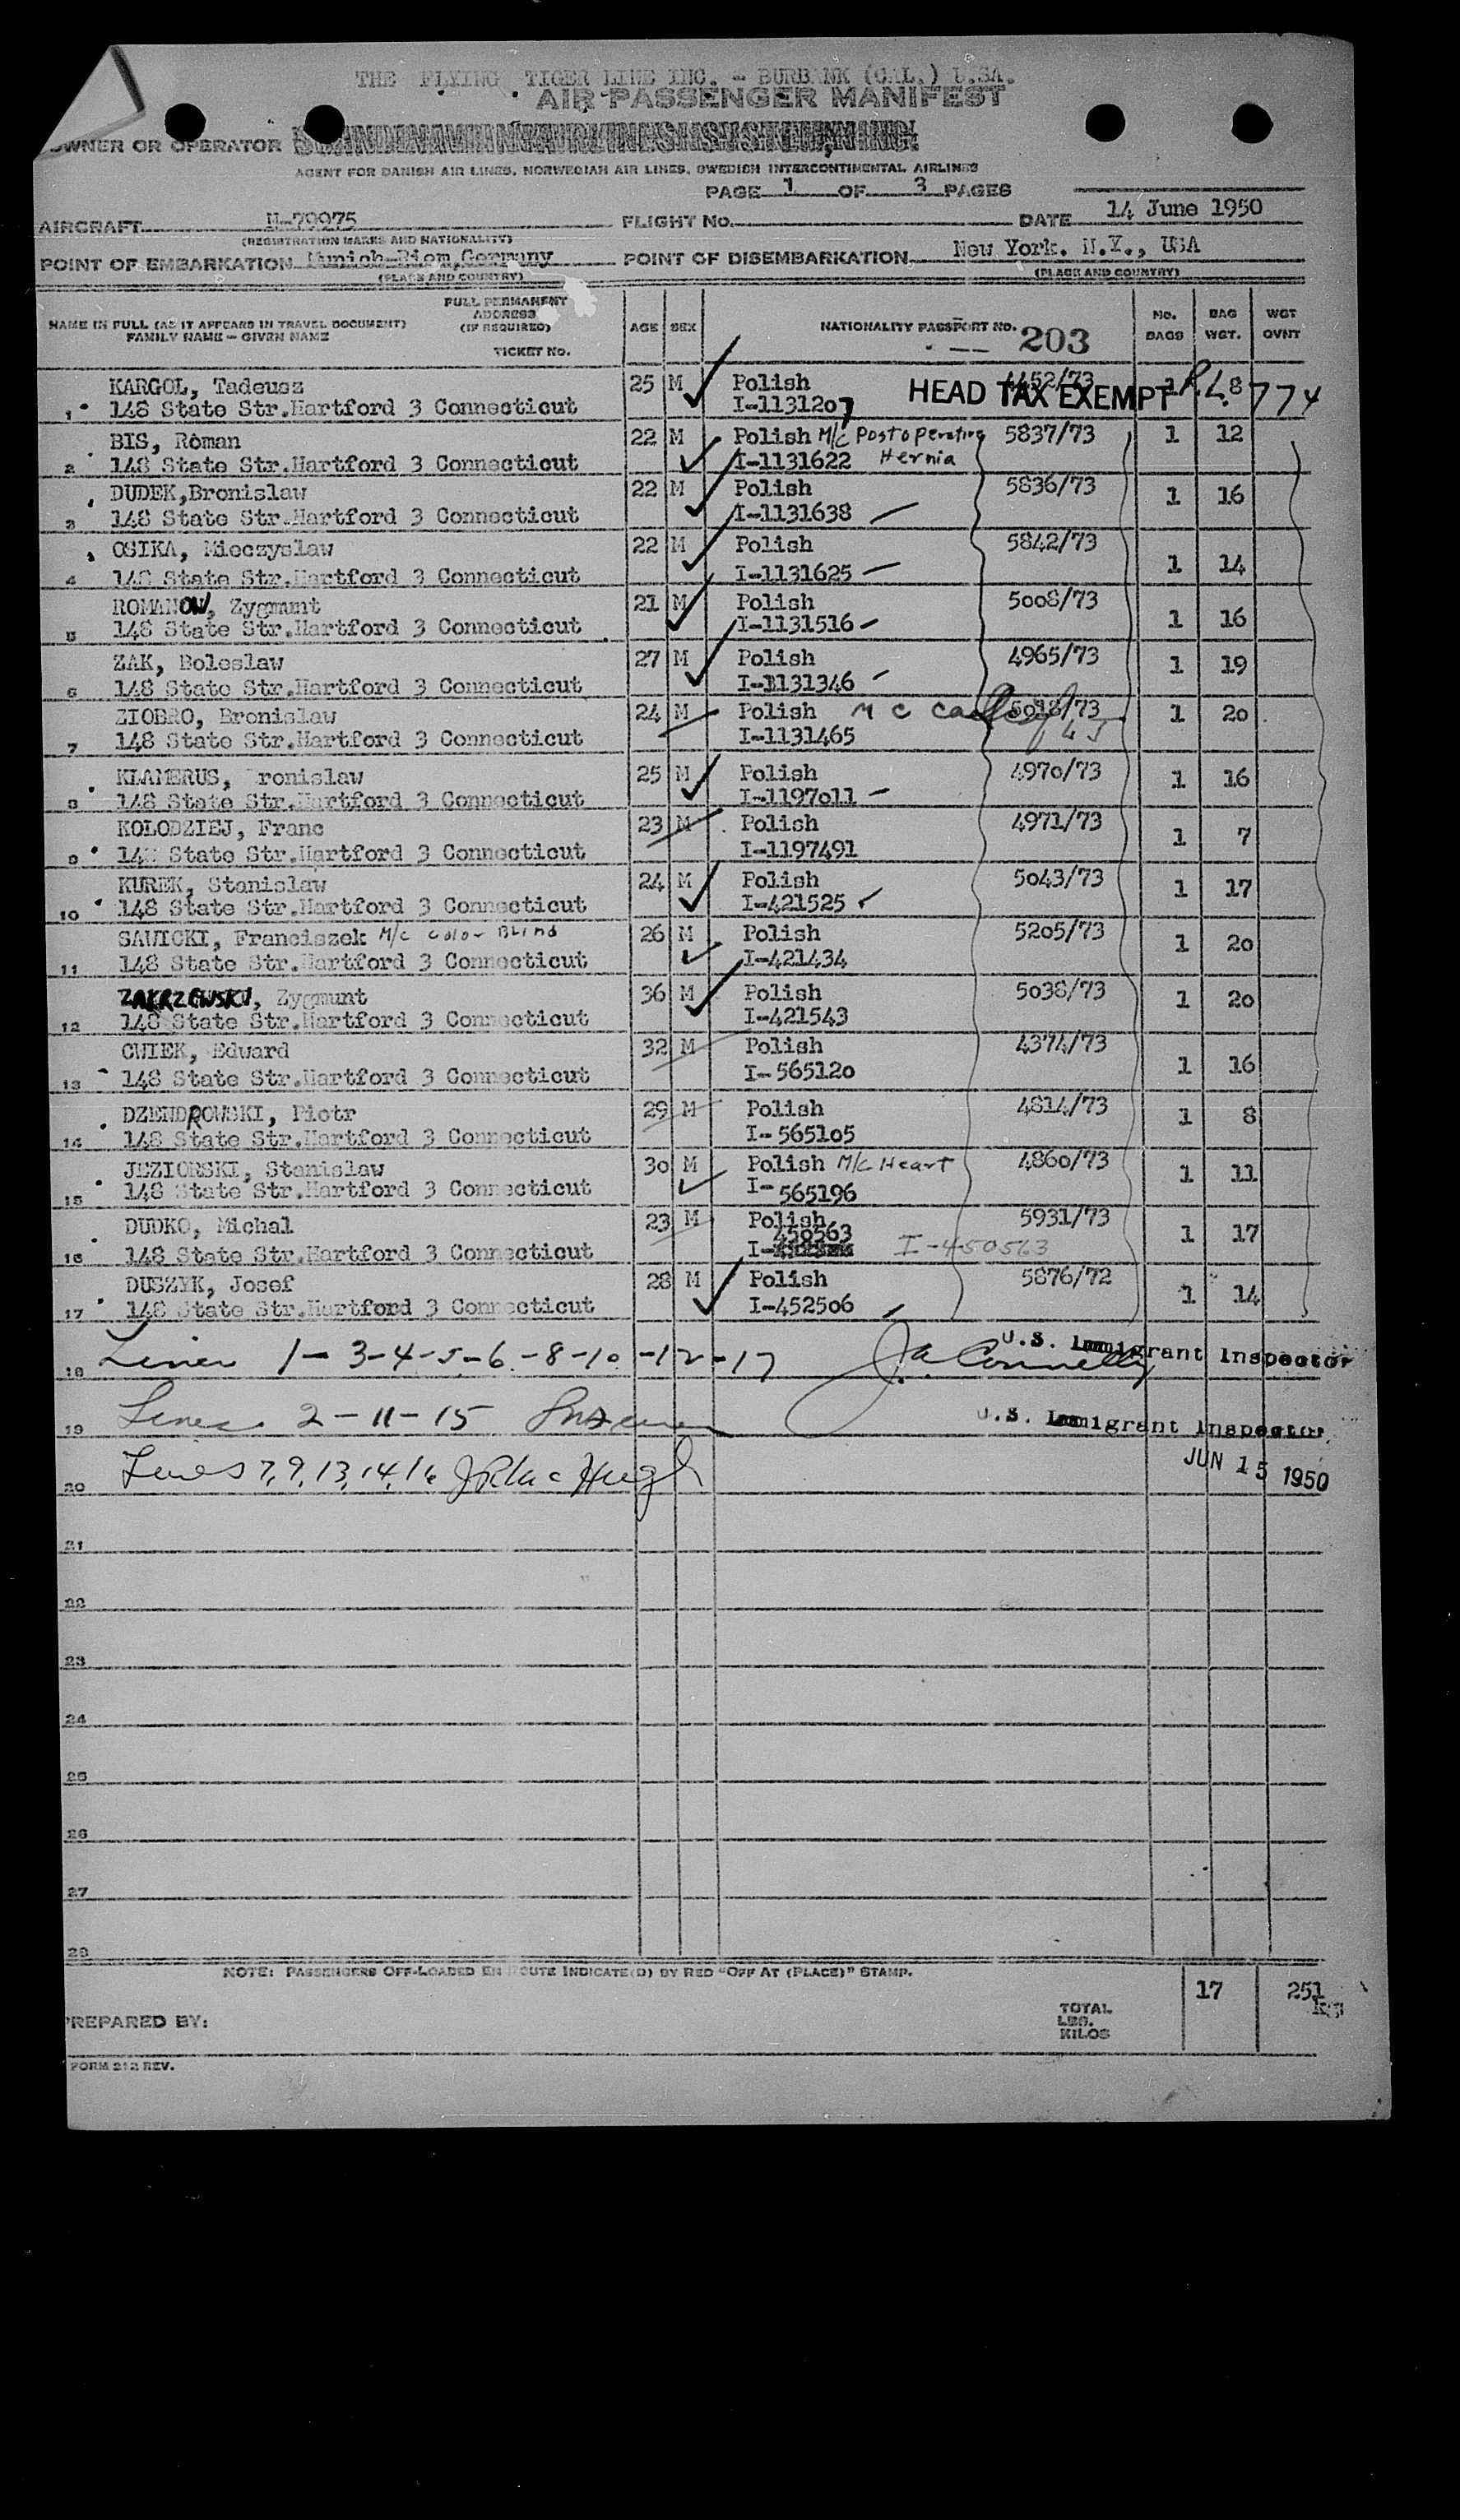 THE FLYING TIGER LINE INC. - BURBANK (CAL.) U.SA.
AIR PASSENGER MANIFEST
OWNER OR OPERATOR
AGENT FOR DANISH AIR LINES, NORWEGIAN AIR LINES, SWEDISH INTERCONTINENTAL AIRLINES
PAGE 1 OF 3 PAGES
AIRCRAFT N-79975 FLIGHT No. DATE 14 June 1950
(REGISTRATION MARKS AND NATIONALITY)
POINT OF EMBARKATION Munich-Riem,Germany POINT OF DISEMBARKATION New York. N.Y., USA
(PLACE AND COUNTRY) (PLACE AND COUNTRY)
NAME IN FULL (AS IT APPEARS IN TRAVEL DOCUMENT) FAMILY NAME – GIVEN NAME FULL PERMANENT ADDRESS (IF REQUIRED) TICKET NO. AGE SEX NATIONALITY PASSPORT NO. NO. BAGS BAG WGT. WGT OVNT
203
KARGOL, Tadeusz 25 M Polish 4452/73 1 8
1 148 State Str.Hartford 3 Connecticut I-1131207 HEAD TAX EXEMPT P.L. 774
BIS, Roman 22 M Polish M/C Postoperative 5837/73 1 12
2 148 State Str.Hartford 3 Connecticut I-1131622 Hernia
DUDEK,Bronislaw 22 M Polish 5836/73 1 16
3 148 State Str.Hartford 3 Connecticut I-1131638
OSIKA, Mieczyslaw 22 M Polish 5842/73
4 148 State Str.Hartford 3 Connecticut I-1131625 1 14
ROMANOW, Zygmunt 21 M Polish 5008/73
5 148 State Str.Hartford 3 Connecticut I-1131516 1 16
ZAK, Boleslaw 27 M Polish 4965/73 1 19
6 148 State Str.Hartford 3 Connecticut I-1131346
ZIOBRO, Bronislaw 24 M Polish M C 1 20
7 148 State Str.Hartford 3 Connecticut I-1131465
KLAMERUS, ronislaw 25 M Polish 4970/73 1 16
8 148 State Str.Hartford 3 Connecticut I-1197011
KOLODZIEJ, Franc 23 M Polish 4971/73 1 7
9 148 State Str.Hartford 3 Connecticut I-1197491
KUREK, Stanislaw 24 M Polish 5043/73 1 17
10 148 State Str.Hartford 3 Connecticut I-421525
SAWICKI, Franciszek M/C Color Blind 26 M Polish 5205/73 1 20
11 148 State Str.Hartford 3 Connecticut I-421434
ZAKRZEWSKI, Zygmunt 36 M Polish 5038/73 1 20
12 148 State Str.Hartford 3 Connecticut I-421543
CWIEK, Edward 32 M Polish 4374/73
13 148 State Str.Hartford 3 Connecticut I-565120 1 16
DZENDROWSKI, Piotr 29 M Polish 4814/73 1 8
14 148 State Str.Hartford 3 Connecticut I-565105
JEZIORSKI, Stanislaw 30 M Polish M/C Heart 4860/73 1 11
15 148 State Str.Hartford 3 Connecticut I-565196
DUDKO, Michal 23 M Polish 5931/73 1 17
450563
16 148 State Str.Hartford 3 Connecticut I- I-450563
DUSZYK, Josef 28 M Polish 5876/72
17 148 State Str.Hartford 3 Connecticut I-452506 1 14
18 Lines 1-3-4-5-6-8-10-12-17 J.A. Connelly U.S. Immigrant Inspector
19 Lines 2-11-15 U.S. Immigrant Inspector
20 Lines 7, 9, 13, 14, 16 JUN 15 1950
21
22
23
24
25
26
27
28
NOTE: PASSENGERS OFF-LOADED EN ROUTE INDICATE(D) BY RED "OFF AT (PLACE)" STAMP.
17 251 kgs
PREPARED BY: TOTAL LBS. KILOS
FORM 212 REV.